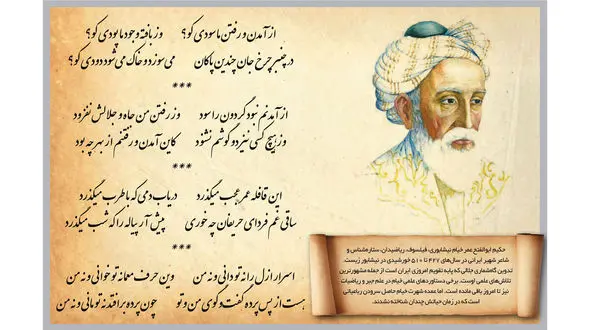 از آمدن و رفتن ما سودی کو؟ وز بافته وجود ما پودی کو؟
در چنبر چرخ جان چندین پاکان می سوزد و خاک می شود دودی کو؟
***
از آمدنم نبود گردون را سود وز رفتن من جاه و جلالش نفزود
وز هیچ کسی نیز دو گوشم نشنود کاین آمدن و رفتنم از بهر چه بود
***
این قافله عمر عجب میگذرد دریاب دمی که با طرب میگذرد
ساقی غم فردای حریفان چه خوری پیش آر پیاله را که شب میگذرد
***
اسرار ازل را نه تو دانی و نه من وین حرف معما نه تو خوانی و نه من
هست از پس پرده گفت و گوی من و تو چون پرده برافتد نه تو مانی و نه من
حکیم ابوالفتح عمر خیام نیشابوری، فیلسوف، ریاضیدان، ستاره‌شناس و
شاعر شهیر ایرانی در سال‌های ۴۲۷ تا ۵۱۰ خورشیدی در نیشابور زیست.
تدوین گاهشماری جلالی که پایه تقویم امروزی ایران است از جمله مشهورترین
تلاش‌های علمی اوست. برخی دستاوردهای علمی خیام در علم جبر و ریاضیات
نیز تا امروز باقی مانده است. اما عمده شهرت خیام حاصل سرودن رباعیاتی
است که در زمان حیاتش چندان شناخته نشدند.